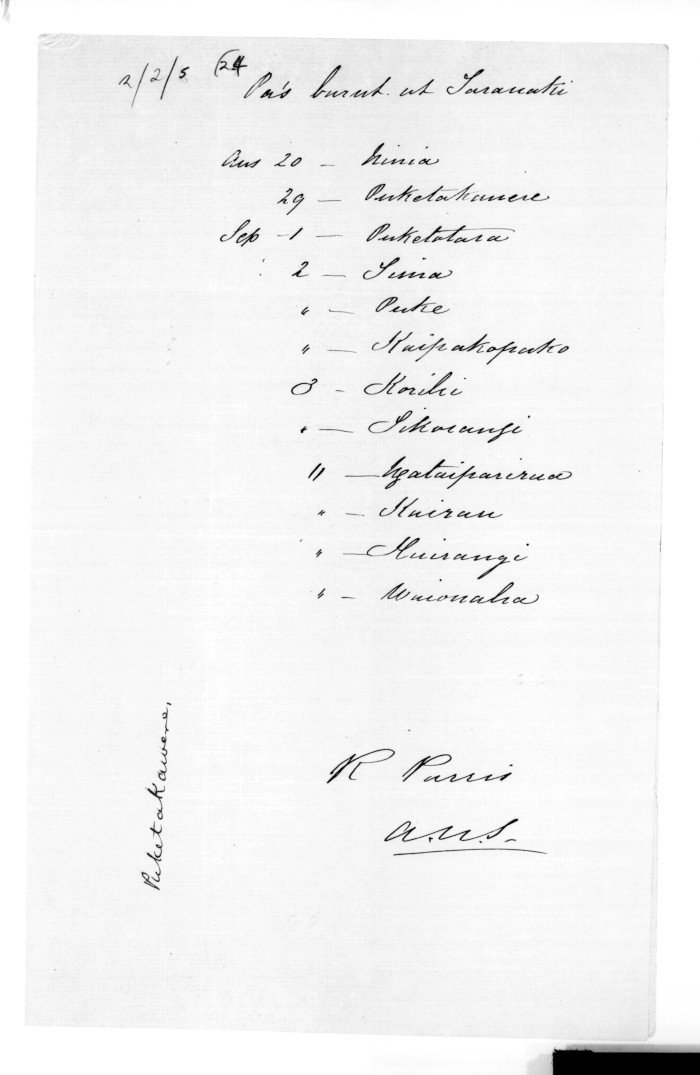 2/2/5 (24
Pa's burnt at Taranaki
Aus 20 - Ninia
29 - Puketakauere
Sep 1 - Puketotara
2 - Tima
" - Puke
" - Kaipakopako
3 - Korihi
" - Tikorangi
11 - Ngataiparirua
" - Kairau
" - Huirangi
" - Waionaha
R Parris
A.N.S.
Puketakawere,